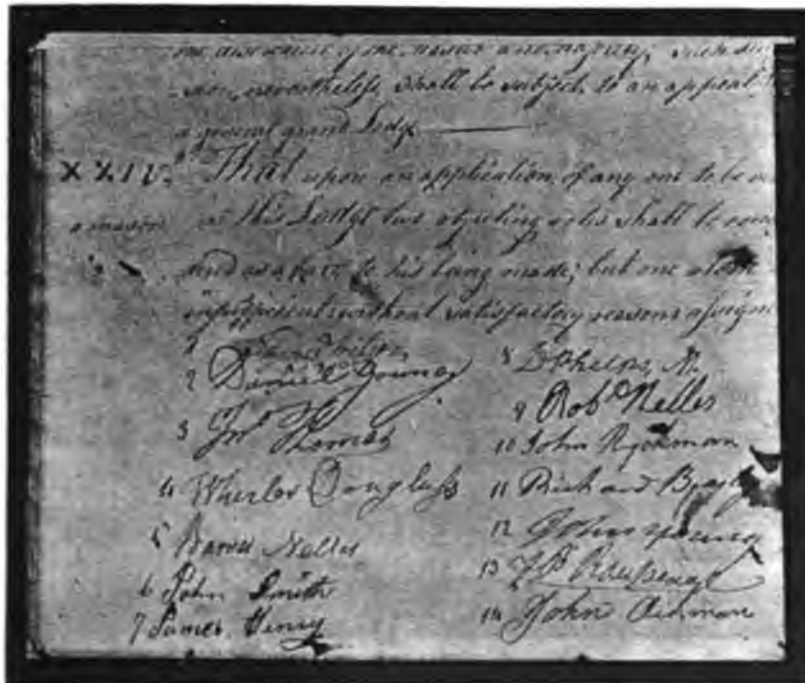 sion, nevertheless, shall be subject to an appeal
a general grand Lodge
XXIV. That upon an application, of any one to be
a mason in this Lodge two objecting votes shall be
and as a barr to his being made; but one alone
insufficient without satisfactory reasons
1 James Wilson
2 Daniel Young
3 Jno Thomas
4 Wheeler Douglass
5 Warner Nelles
6 John Smith
7 James Henry
8 D Phelps,
9 Robt Nelles
10 John Ryckman
11 Richard
12 John Young
13 J B Rousseaux
14 John Aikman